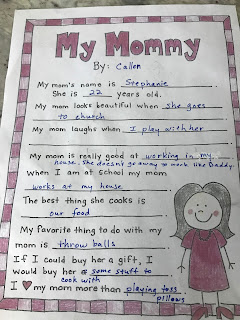 My Mommy
By: Callen
My mom's name is Stephanie.
She is 22 years old.
My mom looks beautiful when she goes
to church
My mom laughs when I play with her
My mom is really good at working in my
house. she doesn't go away to work like Daddy.
When I am at school my mom
works at my house
The best thing she cooks is
our food
My favorite thing to do with my
mom is throw balls
If I could buy her a gift, I
would buy her some stuff to
cook with
I ♥ my mom more than playing toss
pillows